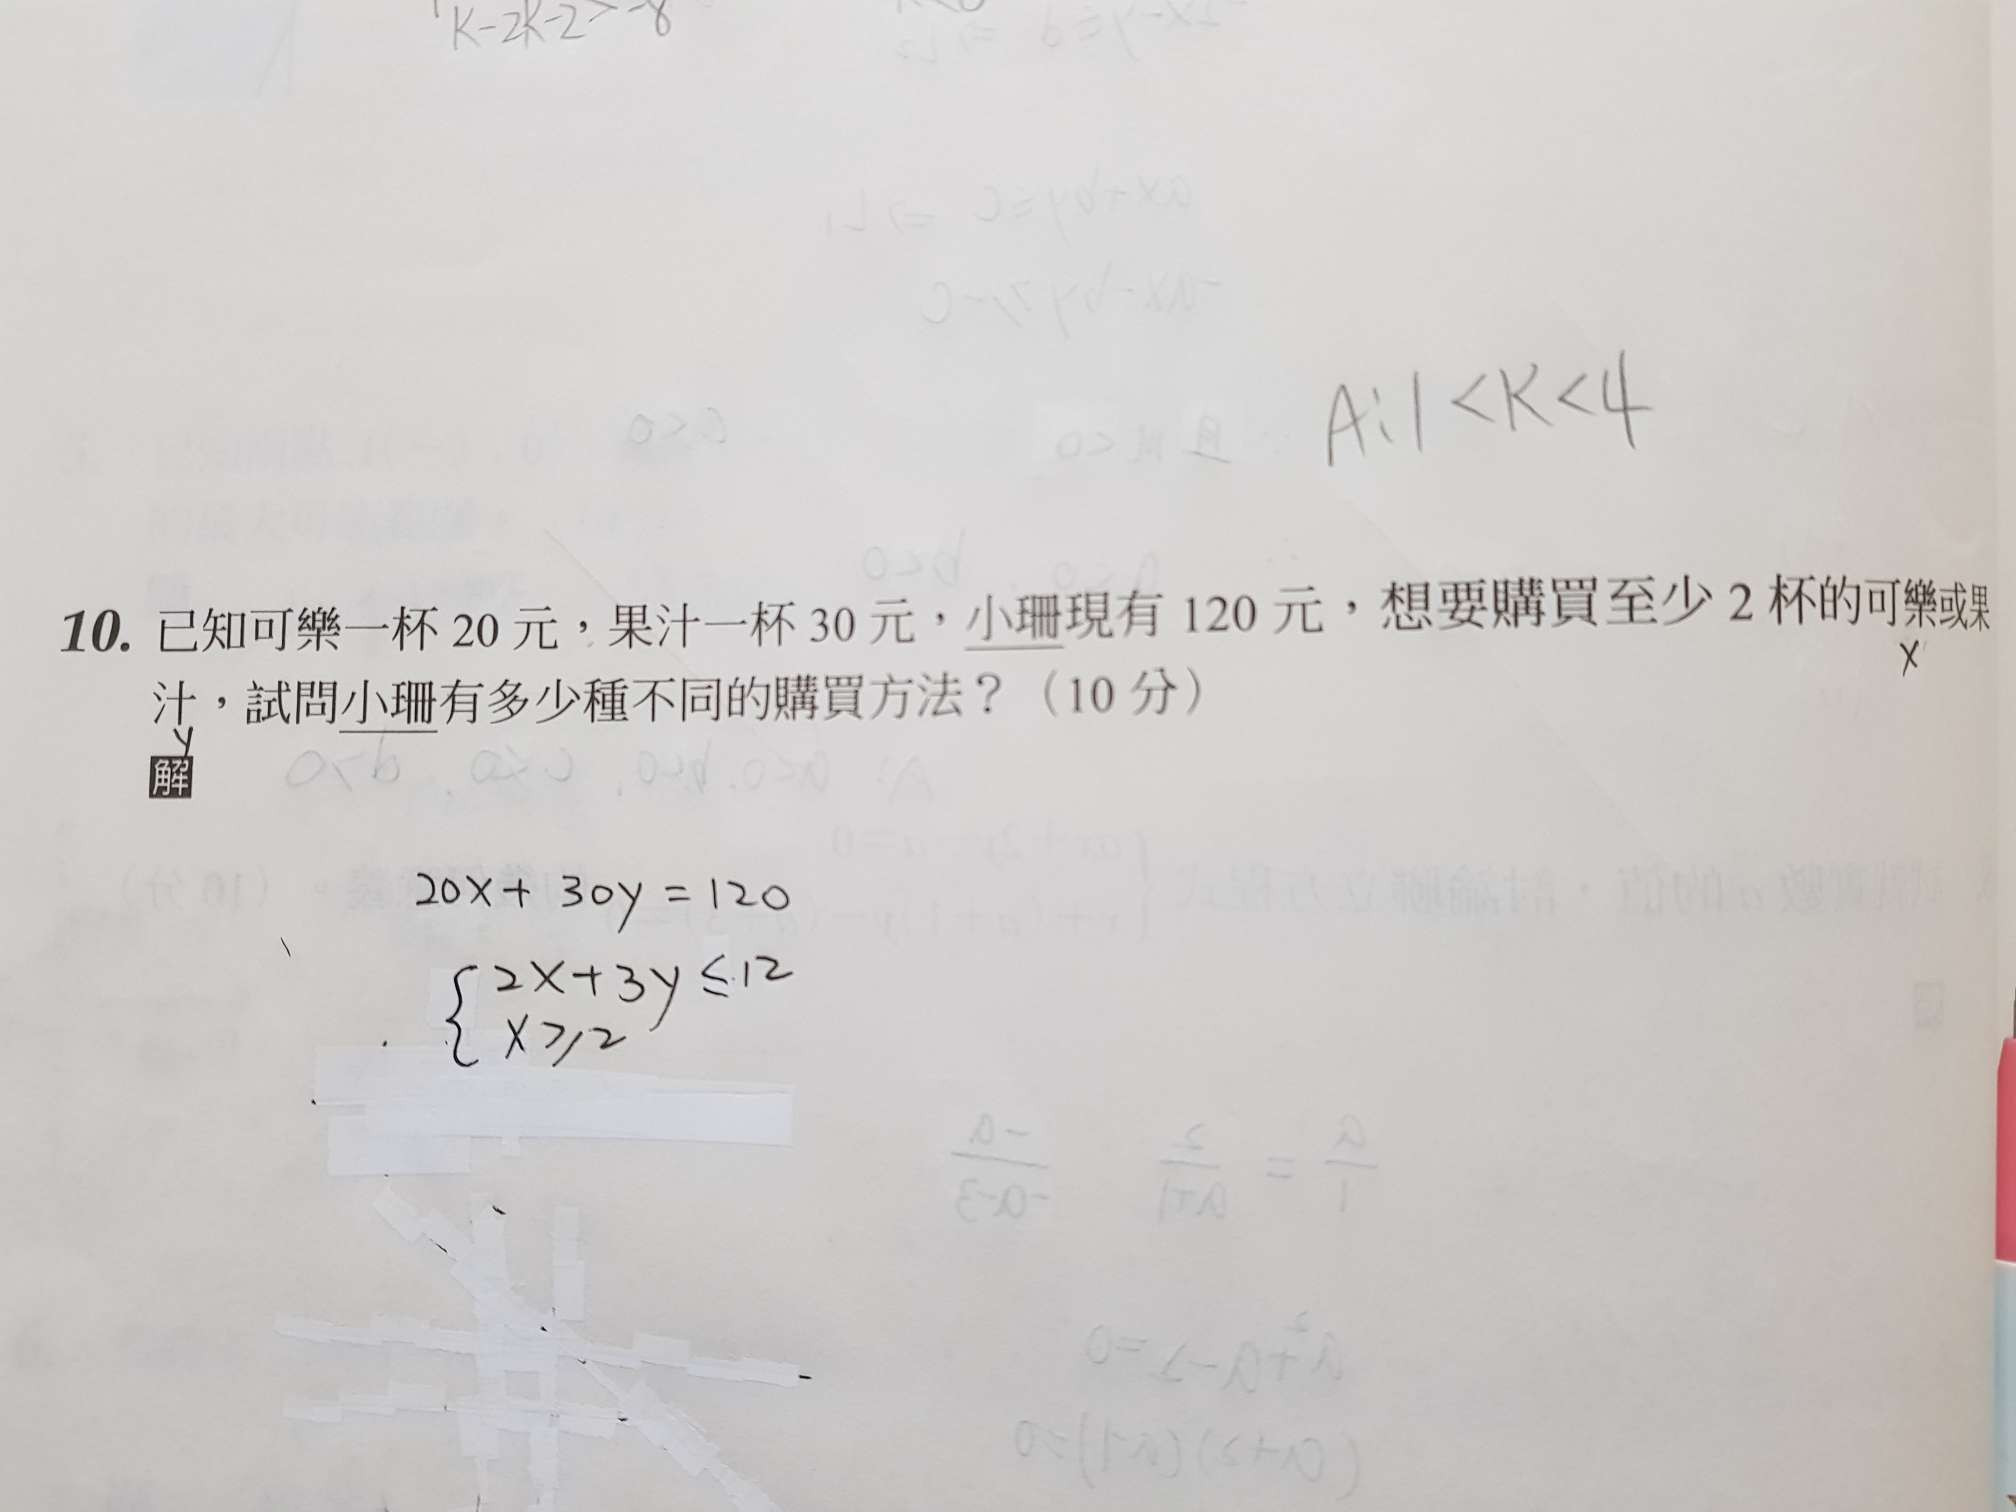 K-2K-2>-8
A:1<K<4
10. 已知可樂一杯 20 元，果汁一杯 30 元，小珊現有 120 元，想要購買至少 2 杯的可樂或果
x
汁，試問小珊有多少種不同的購買方法？（10 分）
y
解
20x+30y=120
2x+3y≤12
x≥2